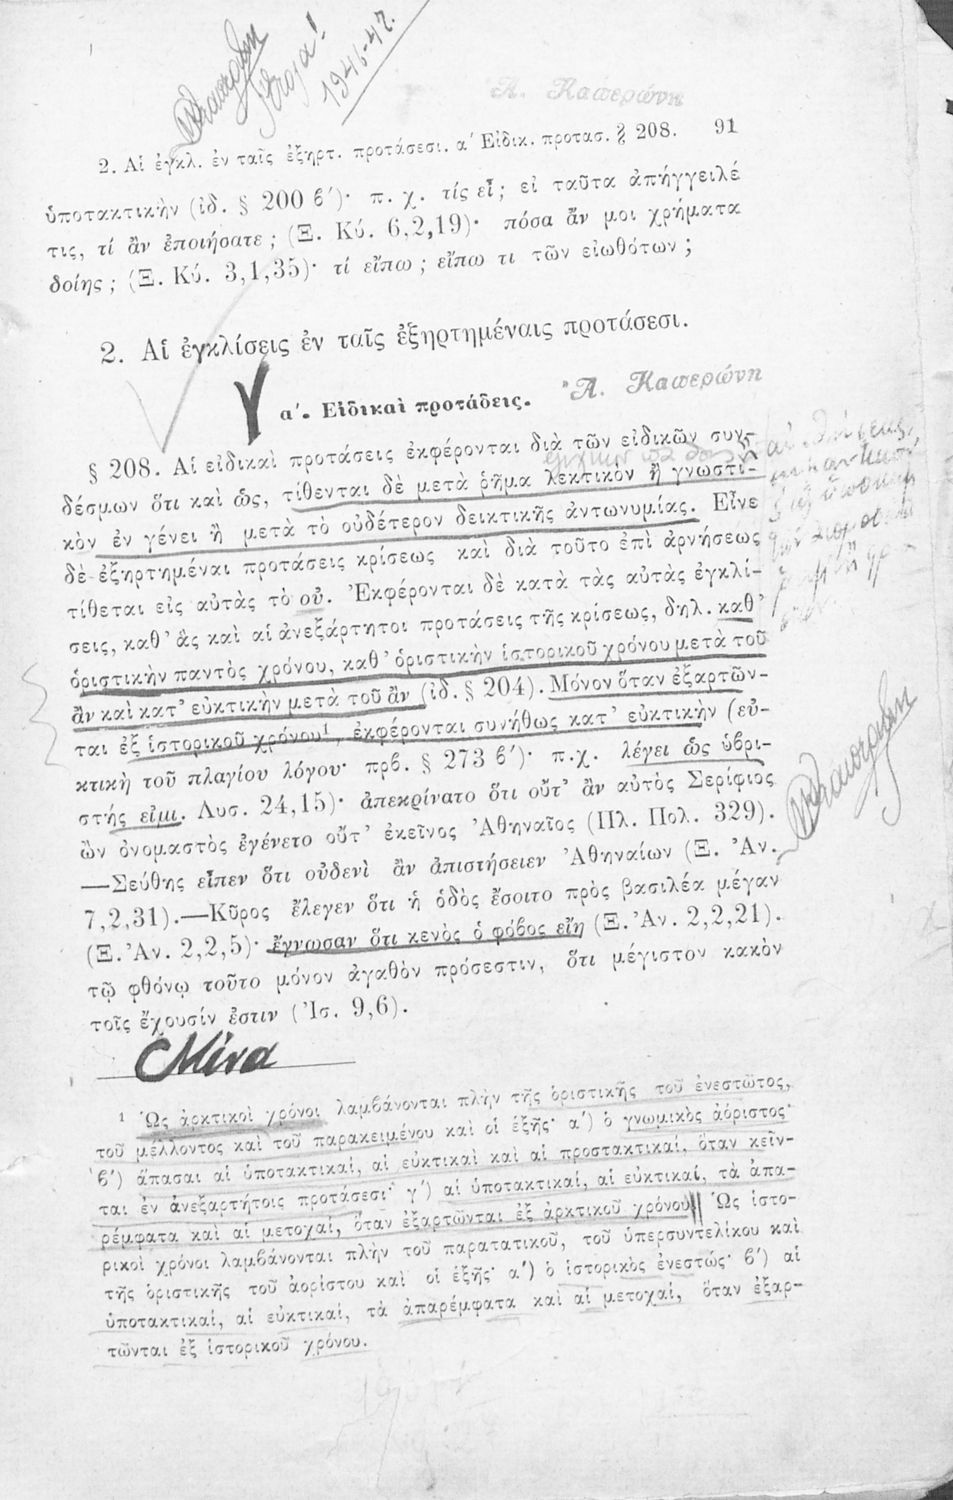 1946-47.
Ἀ. Καπερώνη
2. Αἱ ἐγκλ. ἐν ταῖς ἐξηρτ. προτάσεσι. α′ Εἰδικ. προτασ. § 208. 91
ὑποτακτικὴν (ἰδ. § 200 β′)· π. χ. τίς εἶ; εἰ ταῦτα ἀπήγγειλέ
τις, τί ἂν ἐποιήσατε; (Ξ. Κύ. 6,2,19)· πόσα ἄν μοι χρήματα
δοίης; (Ξ. Κύ. 3,1,35)· τί εἴπω; εἴπω τι τῶν εἰωθότων;
2. Αἱ ἐγκλίσεις ἐν ταῖς ἐξηρτημέναις προτάσεσι.
Ἀ. Καπερώνη
α′. Εἰδικαὶ προτάσεις.
§ 208. Αἱ εἰδικαὶ προτάσεις ἐκφέρονται διὰ τῶν εἰδικῶν συν-
δέσμων ὅτι καὶ ὡς, τίθενται δὲ μετὰ ῥῆμα λεκτικὸν ἢ γνωστι-
κὸν ἐν γένει ἢ μετὰ τὸ οὐδέτερον δεικτικῆς ἀντωνυμίας. Εἶνε
δὲ ἐξηρτημέναι προτάσεις κρίσεως καὶ διὰ τοῦτο ἐπὶ ἀρνήσεως
τίθεται εἰς αὐτὰς τὸ οὐ. Ἐκφέρονται δὲ κατὰ τὰς αὐτὰς ἐγκλί-
σεις, καθ’ ἃς καὶ αἱ ἀνεξάρτητοι προτάσεις τῆς κρίσεως, δηλ. καθ’
ὁριστικὴν παντὸς χρόνου, καθ’ ὁριστικὴν ἱστορικοῦ χρόνου μετὰ τοῦ
ἂν καὶ κατ’ εὐκτικὴν μετὰ τοῦ ἂν (ἰδ. § 204). Μόνον ὅταν ἐξαρτῶν-
ται ἐξ ἱστορικοῦ χρόνου¹, ἐκφέρονται συνήθως κατ’ εὐκτικὴν (εὐ-
κτικὴ τοῦ πλαγίου λόγου· πρβ. § 273 β′)· π.χ. λέγει ὡς ὑβρι-
στής εἰμι. Λυσ. 24,15)· ἀπεκρίνατο ὅτι οὔτ’ ἂν αὐτὸς Σερίφιος
ὢν ὀνομαστὸς ἐγένετο οὔτ’ ἐκεῖνος Ἀθηναῖος (Πλ. Πολ. 329).
—Σεύθης εἶπεν ὅτι οὐδενὶ ἂν ἀπιστήσειεν Ἀθηναίων (Ξ. Ἀν.
7,2,31).—Κῦρος ἔλεγεν ὅτι ἡ ὁδὸς ἔσοιτο πρὸς βασιλέα μέγαν
(Ξ. Ἀν. 2,2,5)· ἔγνωσαν ὅτι κενὸς ὁ φόβος εἴη (Ξ. Ἀν. 2,2,21).
τῷ φθόνῳ τοῦτο μόνον ἀγαθὸν πρόσεστιν, ὅτι μέγιστον κακὸν
τοῖς ἔχουσίν ἐστιν (Ἰσ. 9,6).
Μίνα
¹ Ὡς ἀρκτικοὶ χρόνοι λαμβάνονται πλὴν τῆς ὁριστικῆς τοῦ ἐνεστῶτος,
τοῦ μέλλοντος καὶ τοῦ παρακειμένου καὶ οἱ ἑξῆς· α′) ὁ γνωμικὸς ἀόριστος·
β′) ἅπασαι αἱ ὑποτακτικαί, αἱ εὐκτικαὶ καὶ αἱ προστακτικαί, ὅταν κεῖν-
ται ἐν ἀνεξαρτήτοις προτάσεσι· γ′) αἱ ὑποτακτικαί, αἱ εὐκτικαί, τὰ ἀπα-
ρέμφατα καὶ αἱ μετοχαί, ὅταν ἐξαρτῶνται ἐξ ἀρκτικοῦ χρόνου. Ὡς ἱστο-
ρικοὶ χρόνοι λαμβάνονται πλὴν τοῦ παρατατικοῦ, τοῦ ὑπερσυντελίκου καὶ
τῆς ὁριστικῆς τοῦ ἀορίστου καὶ οἱ ἑξῆς· α′) ὁ ἱστορικὸς ἐνεστώς· β′) αἱ
ὑποτακτικαί, αἱ εὐκτικαί, τὰ ἀπαρέμφατα καὶ αἱ μετοχαί, ὅταν ἐξαρ-
τῶνται ἐξ ἱστορικοῦ χρόνου.